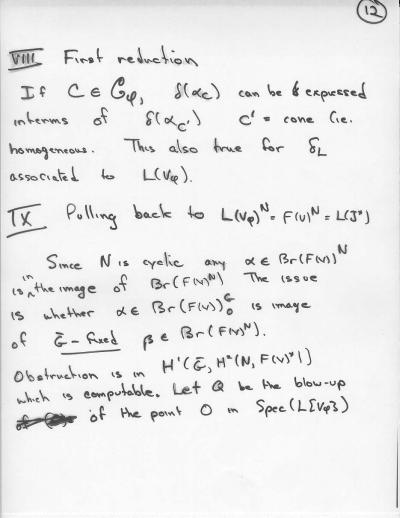 12
VIII First reduction
If C ∈ 𝒞φ, δ(αc) can be expressed
interms of δ(αc') C' = cone (ie.
homogeneous. This also true for δL
associated to L(Vφ).
IX Pulling back to L(Vφ)^N = F(V)^N = L(J*)
Since N is cyclic any α ∈ Br(F(V))^N
is in the image of Br(F(V)^N) The issue
is whether α ∈ Br(F(V))₀^G is image
of G̅-fixed β ∈ Br(F(V)^N).
Obstruction is in H'(G̅, H²(N, F(V)*))
which is computable. Let Q be the blow-up
of the point O in Spec(L[Vφ])